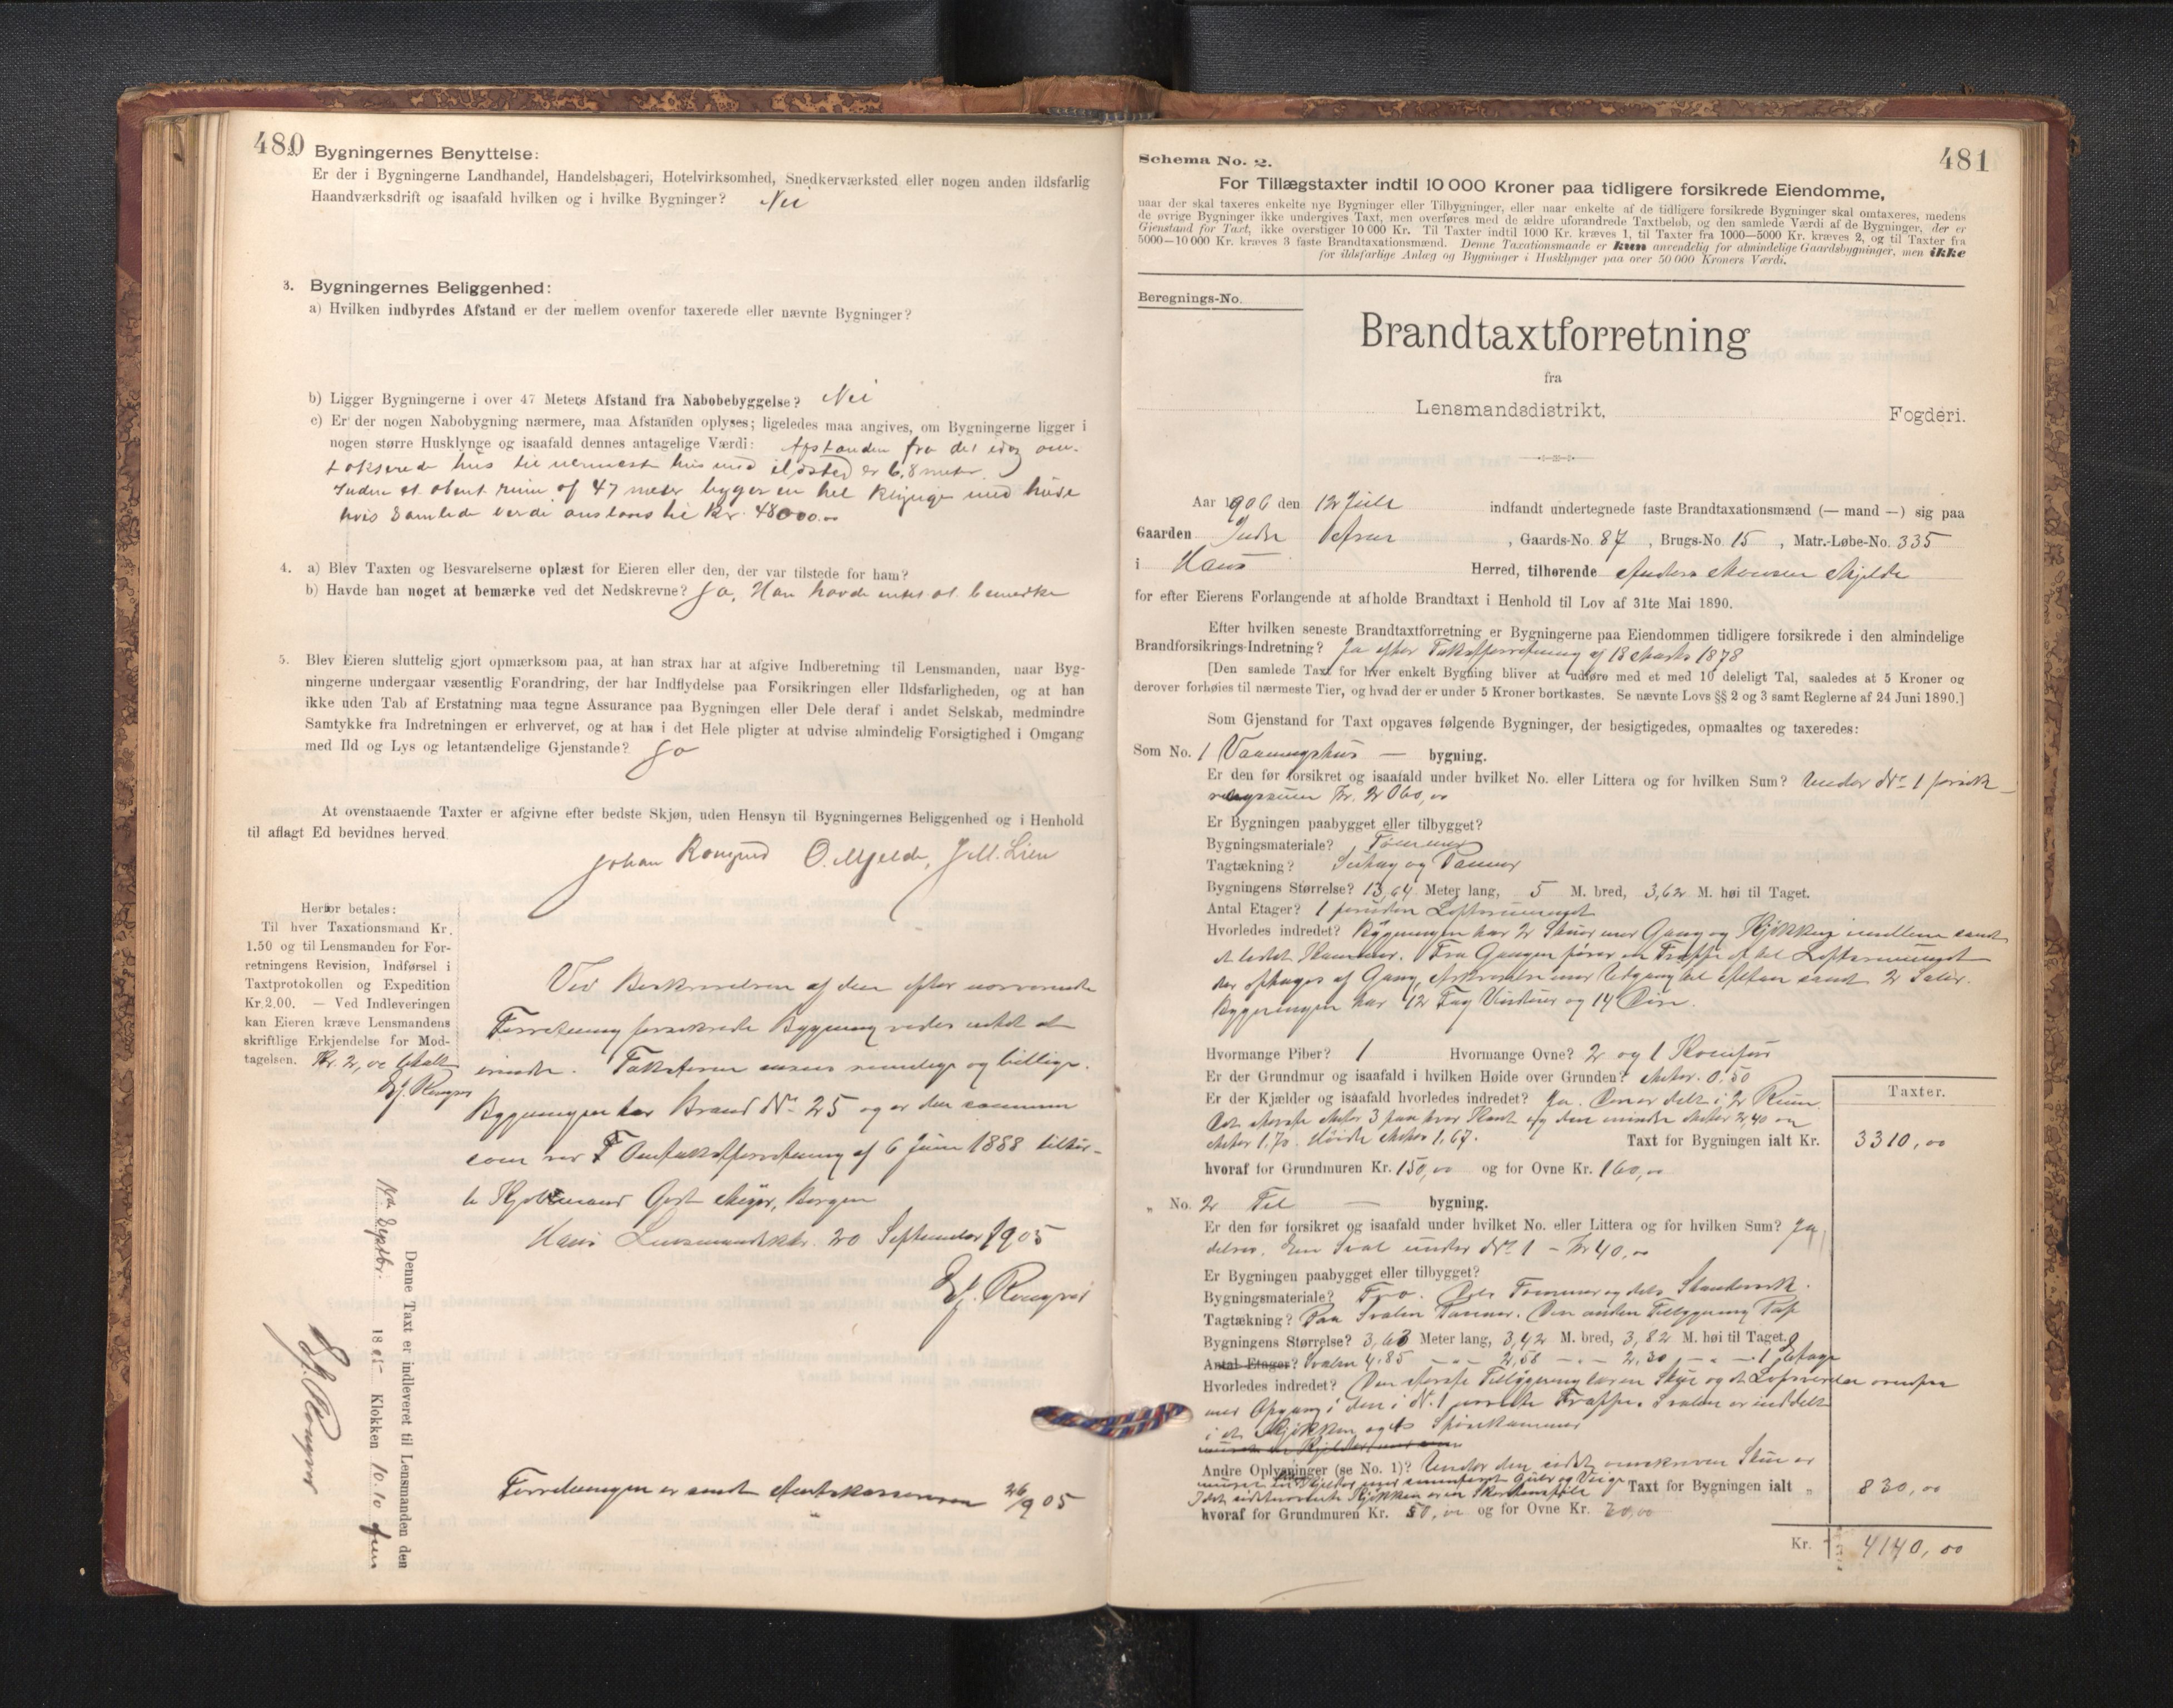 480
2. Bygningernes Benyttelse:
Er der i Bygningerne Landhandel, Handelsbageri, Hotelvirksomhed, Snedkerværksted eller nogen anden ildsfarlig
Haandværksdrift og isaafald hvilken og i hvilke Bygninger? Nei
3. Bygningernes Beliggenhed:
a) Hvilken indbyrdes Afstand er der mellem ovenfor taxerede eller nævnte Bygninger?
b) Ligger Bygningerne i over 47 Meters Afstand fra Nabobebyggelse? Nei
c) Er der nogen Nabobygning nærmere, maa Afstanden oplyses; ligeledes maa angives, om Bygningerne ligger i
nogen større Husklynge og isaafald dennes antagelige Værdi: Afstanden fra det idag om-
takserede hus til nærmest hus med ildsted er 6,8 meter.
Inden et obent rum af 47 meter ligger en hel klynge med huse
hvis samlede verdi anslaaes til Kr. 48000.00
4. a) Blev Taxten og Besvarelserne oplæst for Eieren eller den, der var tilstede for ham?
b) Havde han noget at bemærke ved det Nedskrevne? Ja, Han havde intet at bemerke
5. Blev Eieren sluttelig gjort opmærksom paa, at han strax har at afgive Indberetning til Lensmanden, naar Byg-
ningerne undergaar væsentlig Forandring, der har Indflydelse paa Forsikringen eller Ildsfarligheden, og at han
ikke uden Tab af Erstatning maa tegne Assurance paa Bygningen eller Dele deraf i andet Selskab, medmindre
Samtykke fra Indretningen er erhvervet, og at han i det Hele pligter at udvise almindelig Forsigtighed i Omgang
med Ild og Lys og letantændelige Gjenstande? Ja
At ovenstaaende Taxter er afgivne efter bedste Skjøn, uden Hensyn til Bygningernes Beliggenhed og i Henhold
til aflagt Ed bevidnes herved
Johan Rongved O. Mjelde, J. M. Lien
Herfor betales:
Til hver Taxationsmand Kr.
1.50 og til Lensmanden for For-
retningens Revision, Indførsel i
Taxtprotokollen og Expedition
Kr. 2.00. — Ved Indleveringen
kan Eieren kræve Lensmandens
skriftlige Erkjendelse for Mod-
tagelsen. Kr. 2,00 betalt
Ved Beskrivelsen af den efter nærværende
Forretning forsikrede Bygning vides intet at
erindre. Taksterne ansees rimelige og billige.
Bygningen har Brand No 25 og er den samme
som ved Omtakstforretning af 6 Juni 1888 tilhør-
te Kjøbmand Gert Meyer, Bergen
Haus Lensmandsktr. 20 September 1905
Forretningen er sendt Amtskassereren 26/9 05
Denne Taxt er indleveret til Lensmanden den
Septbr. 18 05 Klokken 10.10 fm
481
Schema No. 2.
For Tillægstaxter indtil 10 000 Kroner paa tidligere forsikrede Eiendomme,
naar der skal taxeres enkelte nye Bygninger eller Tilbygninger, eller naar enkelte af de tidligere forsikrede Bygninger skal omtaxeres, medens
de øvrige Bygninger ikke undergives Taxt, men overføres med de ældre uforandrede Taxtbeløb, og den samlede Værdi af de Bygninger, der er
Gjenstand for Taxt, ikke overstiger 10 000 Kr. Til Taxter indtil 1000 Kr. kræves 1, til Taxter fra 1000—5000 Kr. kræves 2, og til Taxter fra
5000—10 000 Kr. kræves 3 faste Brandtaxationsmænd. Denne Taxationsmaade er kun anvendelig for almindelige Gaardsbygninger, men ikke
for ildsfarlige Anlæg og Bygninger i Husklynger paa over 50 000 Kroners Værdi.
Beregnings-No.
Brandtaxtforretning
fra
Lensmandsdistrikt, Fogderi.
Aar 1906 den 12 Juli indfandt undertegnede faste Brandtaxationsmænd (— mand —) sig paa
Gaarden Indre Arna, Gaards-No. 87, Brugs-No. 15, Matr.-Løbe-No. 335
i Haus Herred, tilhørende Anders Monsen Mjelde
for efter Eierens Forlangende at afholde Brandtaxt i Henhold til Lov af 31te Mai 1890.
Efter hvilken seneste Brandtaxtforretning er Bygningerne paa Eiendommen tidligere forsikrede i den almindelige
Brandforsikrings-Indretning? Ja efter Takstforretning af 18 Marts 1878
[Den samlede Taxt for hver enkelt Bygning bliver at udføre med et med 10 deleligt Tal, saaledes at 5 Kroner og
derover forhøies til nærmeste Tier, og hvad der er under 5 Kroner bortkastes. Se nævnte Lovs §§ 2 og 3 samt Reglerne af 24 Juni 1890.]
Som Gjenstand for Taxt opgaves følgende Bygninger, der besigtigedes, opmaaltes og taxeredes:
Som No. 1 Vaaningshus — bygning.
Er den før forsikret og isaafald under hvilket No. eller Littera og for hvilken Sum? Under No 1 forsik-
ringssum Kr. 2060,00
Er Bygningen paabygget eller tilbygget?
Bygningsmateriale? Tømmer
Tagtækning? Suttag og Panner
Bygningens Størrelse? 13,64 Meter lang, 5 M. bred, 3,62 M. høi til Taget.
Antal Etager? 1 foruden Loftsrummet
Hvorledes indredet? Bygningen har 2 Stuer med Gang og Kjøkken imellem samt
et lidet Kammer. Fra Gangen fører en Trappe op til Loftsrummet
der optages af Gang, med Udgang til Altan samt 2 Saler.
Bygningen har 12 Fag Vinduer og 14 Døre.
Hvormange Piber? 1 Hvormange Ovne? 2 og 1 Komfur
Er der Grundmur og isaafald i hvilken Høide over Grunden? Meter. 0,50
Er der Kjælder og isaafald hvorledes indredet? Ja. Den er delt i 2 Rum.
Det største Meter 3 paa hver Kant og den mindre Meter 2,40 og
Meter 1,70. Høide Meter 1,67. Taxt for Bygningen ialt Kr.
Taxter.
3310,00
hvoraf for Grundmuren Kr. 150,00 og for Ovne Kr. 160,00
„ No. 2 Til — bygning.
Er den før forsikret og isaafald under hvilket No. eller Littera og for hvilken Sum? Ja,
delvis. En Sval under No 1 - Kr 40,00
Er Bygningen paabygget eller tilbygget?
Bygningsmateriale? Træ. Dels Tømmer og dels Standverk.
Tagtækning? Paa Svalen Panner. Den anden Tilbygning Pap
Bygningens Størrelse? 3,63 Meter lang, 3,42 M. bred, 3,82 M. høi til Taget.
Antal Etager? Svalen 4,85 — 2,58 — 2,30 — 1 Etage
Hvorledes indredet? Den største Tilbygning er en Skur og et Loftsværelse ovenpaa
med Opgang i den i No. 1 nævnte Trappe. Svalen er inddelt
i et Kjøkken og et Spisekammer
Andre Oplysninger (se No. 1)? Under den sidst omskrevne Skur er
muret en Kjelder med cementeret Gulv og Vægge Taxt for Bygningen ialt „
I det sidstnævnte Kjøkken er en Skorstenspibe
830,00
hvoraf for Grundmuren Kr. 50,00 og for Ovne Kr.
Kr. 4140,00